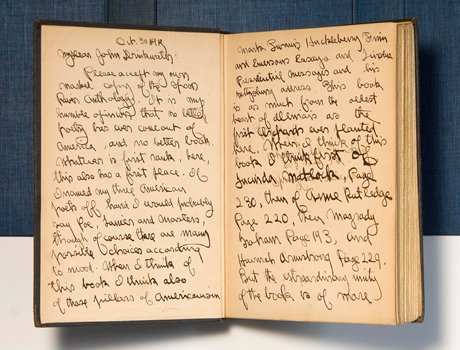 Oct. 30 1919
My dear John Drinkwater:
Please accept my own
marked copy of the Spoon
River Anthology. It is my
humble opinion that no better
poetry has ever come out of
America, and no better book.
Whatever is first rank, here,
this also has a first place. If
I named my three American
poets off hand I would probably
say Poe, Lanier and Masters,
though of course there are many
possible choices according
to mood. When I think of
this book I think also
of those pillars of Americanism
Mark Twain's Huckleberry Finn
and Emerson's Essays and Lincoln
Presidential Messages and his
Gettysburg address. This book
is as much from the oldest
heart of Illinois as the
first orchards ever planted
here. When I think of this
book I think first of
Lucinda Matlock, Page
230, then of Anne Rutledge
Page 220, then
Page 193, and
Hannah Armstrong Page 229.
But the extraordinary unity
of the book is of more